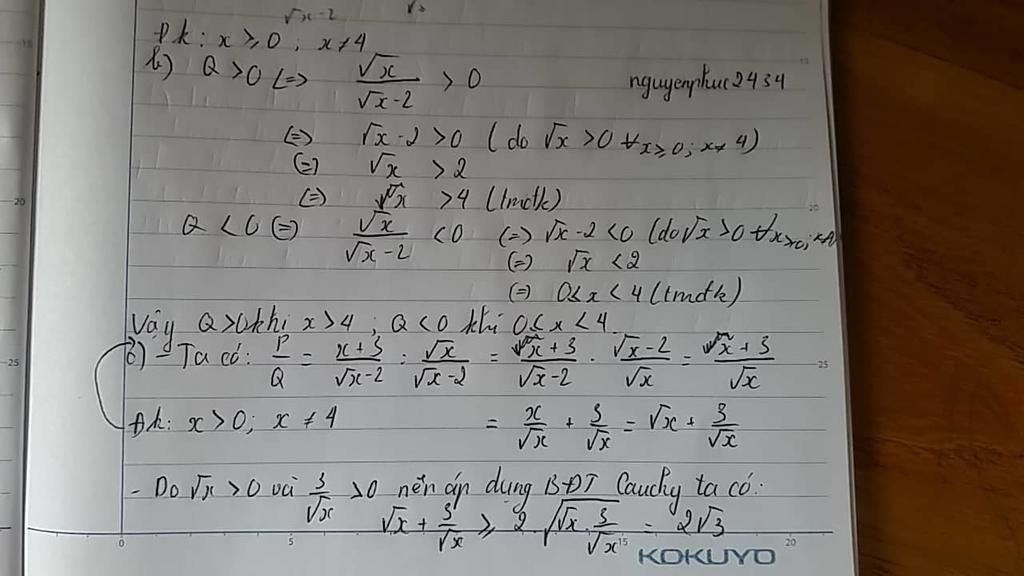 √x-2
Đk: x ≥ 0; x ≠ 4
b) Q > 0 (=> √x / (√x-2) > 0
nguyenphuc2434
(=) √x-2 > 0 (do √x > 0 ∀x≥0; x≠4)
(=) √x > 2
(=) x > 4 (tmđk)
Q < 0 (=) √x / (√x-2) < 0 (=) √x-2 < 0 (do √x > 0 ∀x≥0; x≠4)
(=) √x < 2
(=) 0 < x < 4 (tmđk)
Vậy Q>0 khi x>4; Q<0 khi 0<x<4.
c) - Ta có: P/Q = (x+3)/(√x-2) : √x/(√x-2) = (x+3)/(√x-2) . (√x-2)/√x = (x+3)/√x
Đk: x > 0; x ≠ 4 = x/√x + 3/√x = √x + 3/√x
- Do √x > 0 và 3/√x > 0 nên áp dụng BĐT Cauchy ta có:
√x + 3/√x ≥ 2.√(√x.3/√x) = 2√3
15
20
25
15
20
25
0 5 15 20
KOKUYO